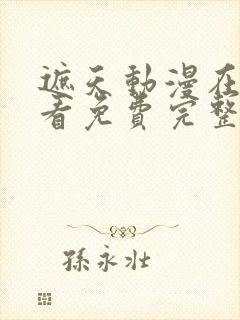 遮天動漫在
看免費完整
孫永壯